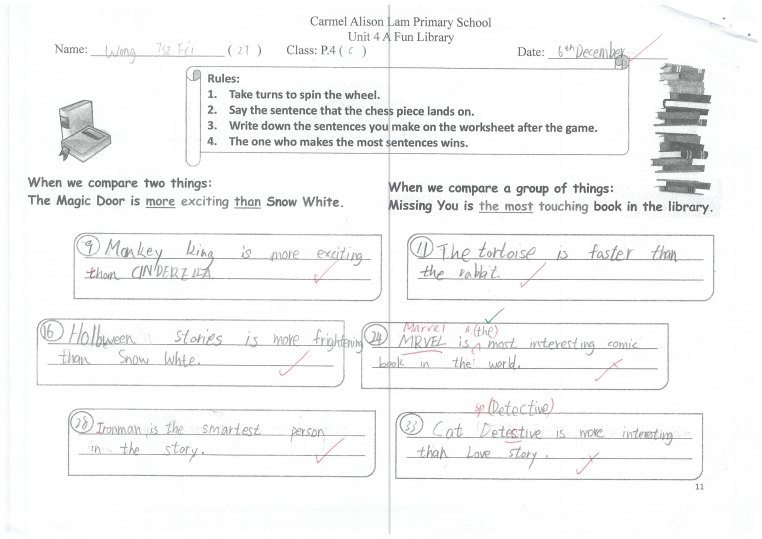 Carmel Alison Lam Primary School
Unit 4 A Fun Library
Name: Wong Tsz Fri ( 27 ) Class: P.4 ( C ) Date: 6th December
Rules:
1. Take turns to spin the wheel.
2. Say the sentence that the chess piece lands on.
3. Write down the sentences you make on the worksheet after the game.
4. The one who makes the most sentences wins.
When we compare two things:
The Magic Door is more exciting than Snow White.
When we compare a group of things:
Missing You is the most touching book in the library.
9 Monkey king is more exciting
than CINDERELLA
11 The tortoise is faster than
the rabbit.
16 Holloween stories is more frightening
than Snow Whte.
Marvel (the)
24 MRVEL is most interesting comic
book in the world.
28 Ironman is the smartest person
in the story.
sp (Detective)
33 Cat Detestive is more interesting
than Love story.
11